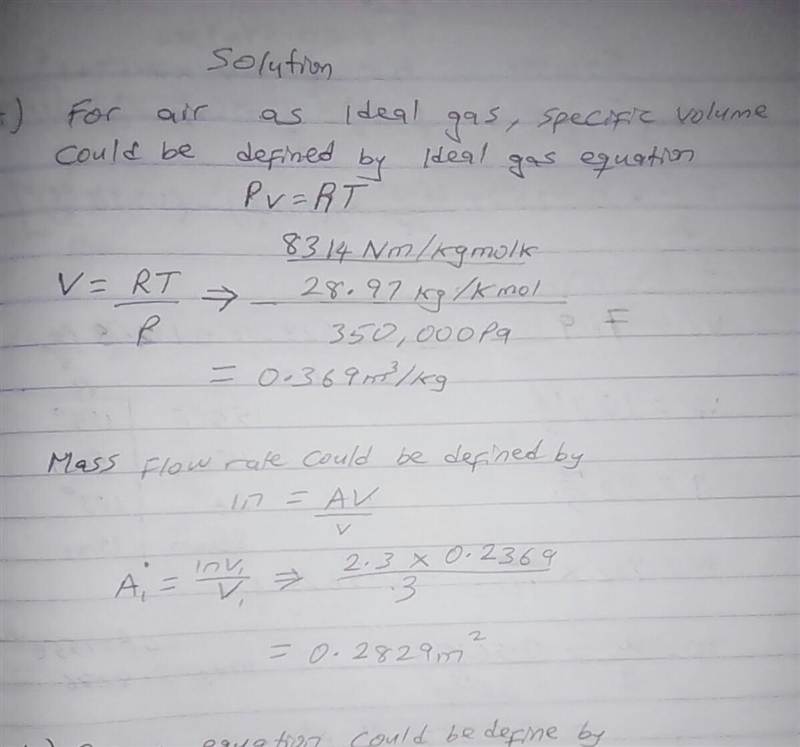 Solution
) For air as Ideal gas, specific volume
could be defined by Ideal gas equation
Pv=RT
V = RT/P ⇒ 8314 Nm/kgmolk / 28.97 kg/Kmol / 350,000Pa
= 0.369m³/kg
Mass flow rate could be defined by
ṁ = AV/v
A₁ = ṁv₁/V₁ ⇒ 2.3 x 0.2369/.3
= 0.2829m²
equation could be define by